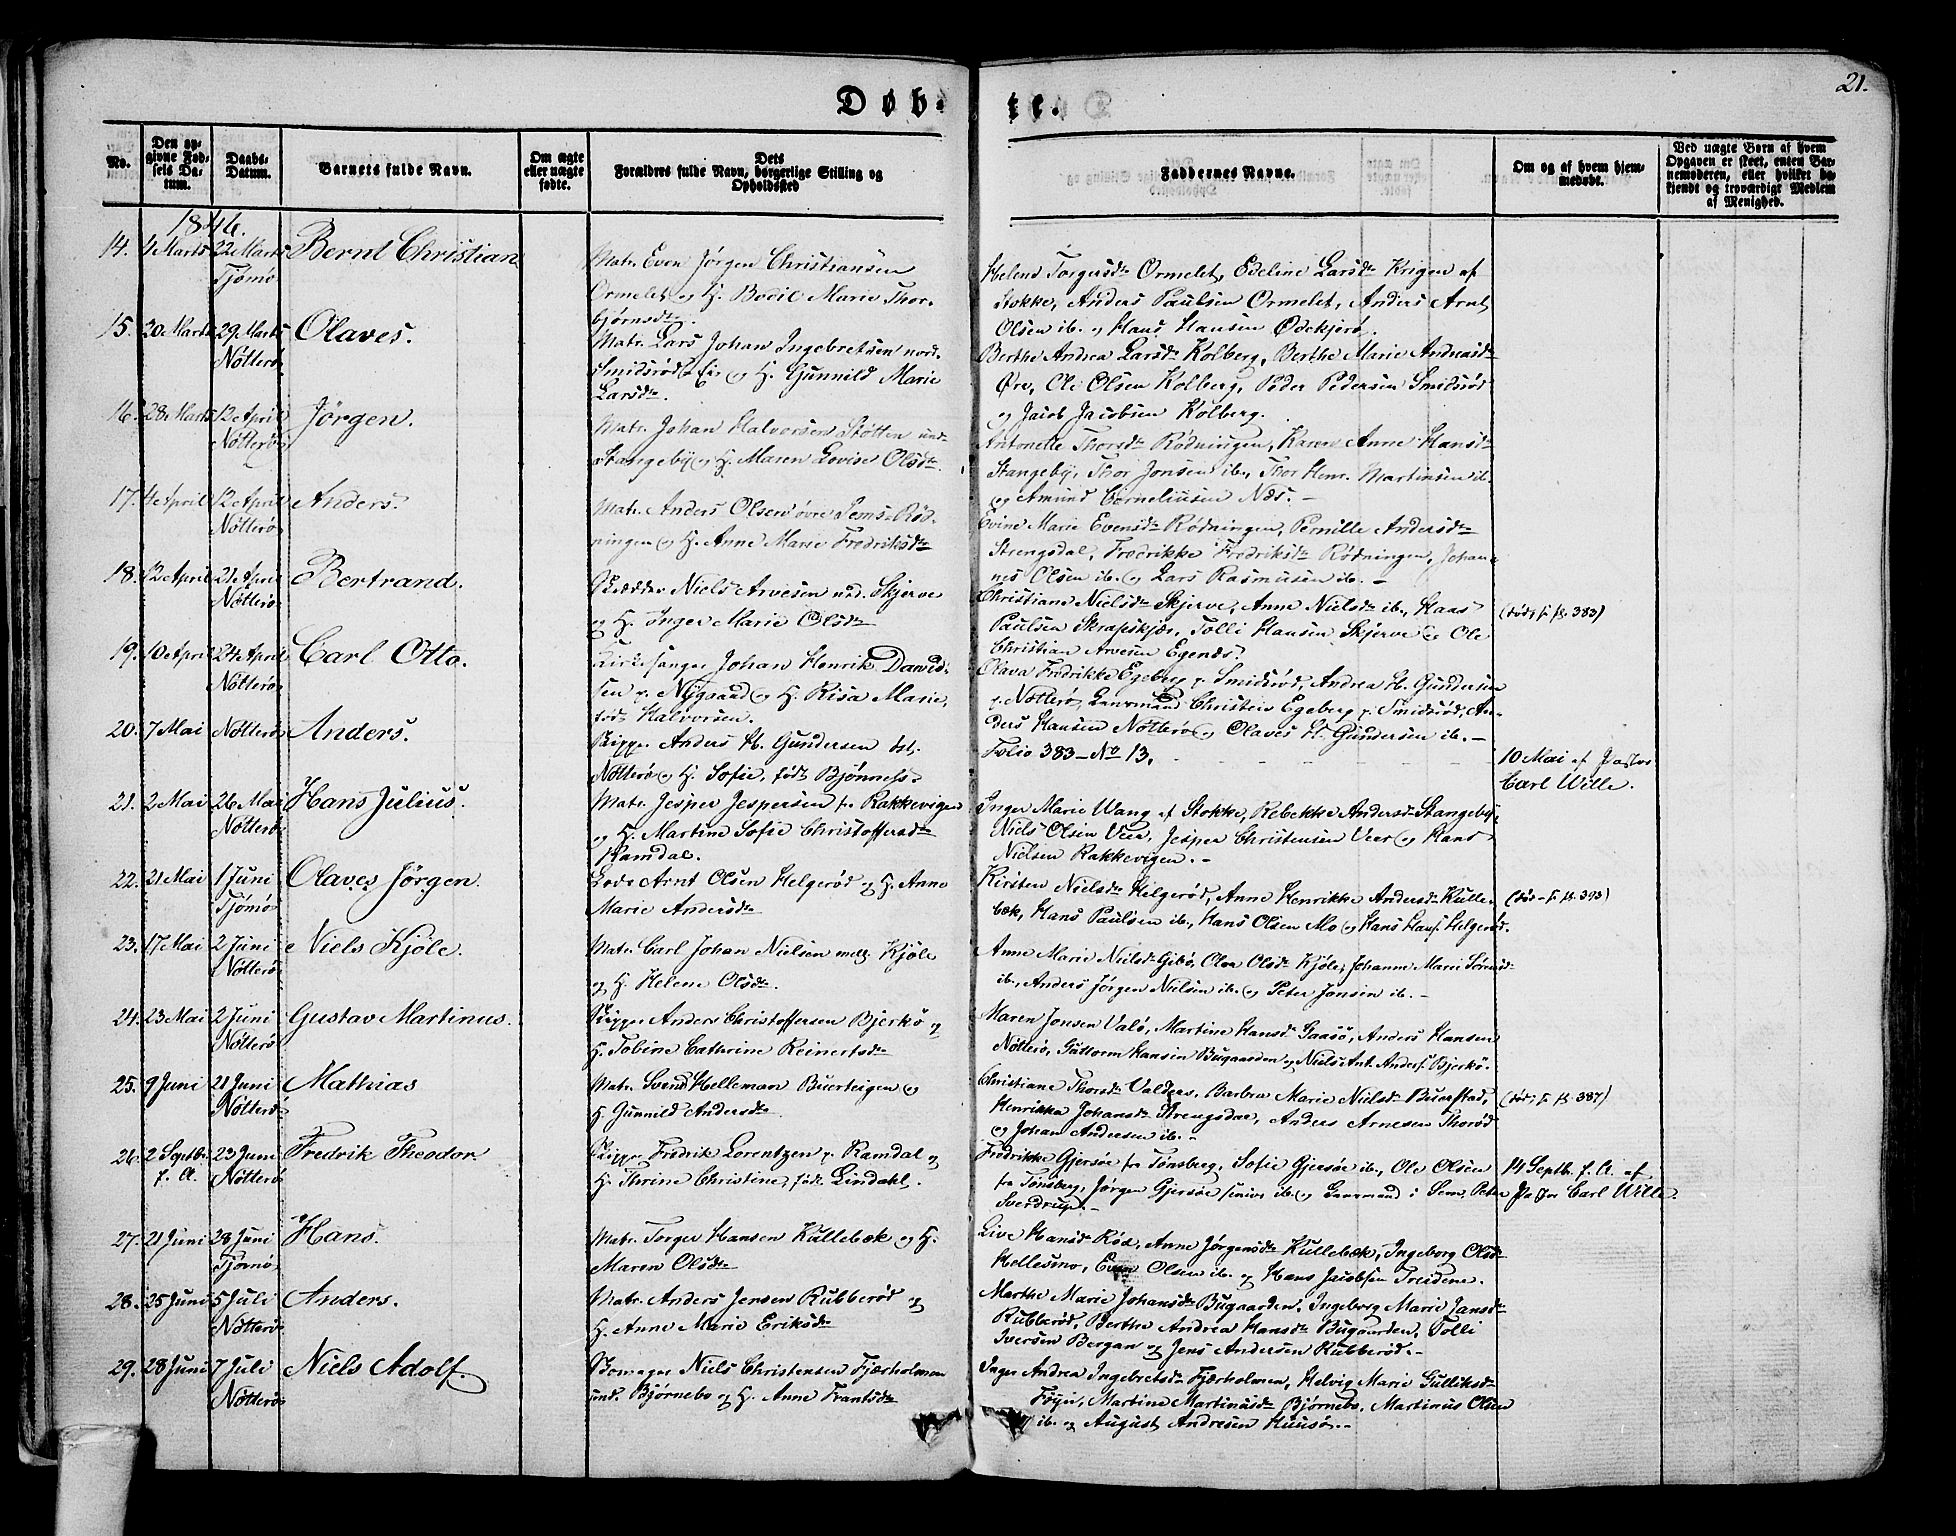 21.
Døb- te.
No.
Den opgivne Fødsels Datum.
Daabs-Datum.
Barnets fulde Navn.
Om ægte eller uægte fødte.
Forældres fulde Navn, Dets borgerlige Stilling og Opholdssted
Faddernes Navne.
Om og af hvem hjemmedøbt.
Ved uægte Børn af hvem Opgaven er skeet, enten Barnemoderen, eller hvilket bekjendt og troværdigt Medlem af Menighed.
1846.
14. 4 Marts 22 Marts Tjømø Bernt Christian
Matr. Even Jørgen Christiansen
Ormelet og H. Bodil Marie Thor-
bjørnsdtr.
Helene Torgersdtr Ormelet, Edeline Larsdtr Krigen af
Stokke, Anders Paulsen Ormelet, Anders Arnt
Olsen ib. og Hans Hansen Ødekjerø.
15. 20 Marts 29 Marts Nötterö Olaves.
Matr. Lars Johan Ingebretsen nord.
Smidsrød og H. Gunnild Marie
Larsdtr.
Berthe Andrea Larsdtr Kolberg, Berthe Marie Andreasdtr
Øre, Ole Olsen Kolberg, Peder Pedersen Smidsrød
og Jacob Jacobsen Kolberg.
16. 28 Marts 12 April Nötterö Jörgen.
Matr. Johan Halvorsen Støtten und.
Stangeby og H. Maren Lovise Olsdtr.
Antonette Thorsdtr Rødningen, Karen Anne Hansdtr
Stangeby, Thor Jonsen ib., Thor Henr. Martinsen ib.
og Amund Corneliusen Næs. -
17. 4 April 12 April Nötterö Anders.
Matr. Anders Olsen øvre Sems-Rød-
ningen og H. Anne Marie Fredriksdtr
Evine Marie Evensdtr Rødningen, Pernille Andersdtr
Strengsdal, Fredrikke Fredriksdtr Rødningen, Johan-
nes Olsen ib. og Lars Rasmusen ib. -
18. 12 April 21 April Nötterö Bertrand.
Skrædder Niels Arvesen nød. Skjerve
og H. Inger Marie Olsdtr
Christiane Nielsdtr Skjerve, Anne Nielsdtr ib., Haas
Paulsen Skrapeskjær, Tolli Hansen Skjerve og Ole
Christian Arvesen Egenæs.
(død, s. p. 383)
19. 10 April 24 April Nötterö Carl Otto.
Kirkesanger Johan Henrik David-
sen p. Nygaard og H. Risa Marie,
født Halvorsen.
Olava Fredrikke Egeberg p. Smidsrød, Andrea H. Gundersen
p. Nötterö, Lensmand Christen Egeberg p. Smidsrød, An-
ders Hansen Nötterö og Olaves H. Gundersen ib. -
20. 7 Mai Nötterö Anders.
Skipper Anders H. Gundersen
Nötterö og H. Sofie, født Bjönness.
Folio 383 - No 13.
10 Mai af Pastor
Carl Wille.
21. 2 Mai 26 Mai Nötterö Hans Julius.
Matr. Jesper Jespersen fr. Rakkevigen
og H. Martine Sofie Christoffersdtr
Ramdal.
Inger Marie Wang af Stokke, Rebekke Andersdtr Stangeby,
Niels Olsen Veer, Jesper Christensen Veer og Hans
Nielsen Rakkevigen. -
22. 21 Mai 1 Juni Tjömö Olaves Jörgen.
Lods Arnt Olsen Helgerød og H. Anne
Marie Andersdtr
Kirsten Nielsdtr Helgerød, Anne Henrikke Andersdtr Kulle-
bæk, Hans Paulsen ib., Hans Olsen Mo og Hans Hans. Helgerød.
(død - s. p. 393)
23. 17 Mai 2 Juni Nötterö Niels Kjöle.
Matr. Carl Johan Nielsen mell. Kjöle
og H. Helene Olsdtr.
Anne Marie Nielsdtr Gibö, Olea Olsdtr Kjöle, Johanne Marie Sörensdtr
ib., Anders Jörgen Nielsen ib. og Peter Jansen ib. -
24. 23 Mai 2 Juni Nötterö Gustav Martinus.
Skipper Anders Christoffersen Bjerkö og
H. Tobine Cathrine Reinertsdtr
Maren Jonsen Valö, Martine Hansdtr Gaasö, Anders Hansen
Nötterö, Guttorm Hansen Bugaarden og Niels Ant. Anders. Bjerkö.
25. 9 Juni 21 Juni Nötterö Mathias
Matr. Svend Helleman Buerteigen og
H. Gunnild Andersdtr.
Christiane Thorsdtr Valders, Barbra Marie Nielsdtr Buerstad,
Henrikka Johansdtr Strengsdal, Anders Arnesen Thorød
og Johan Andersen ib. -
(død, s. p. 387)
26. 2 Septbr. f. A. 23 Juni Nötterö Fredrik Theodor
Skipper Fredrik Lorentzen p. Ramdal og
H. Thrine Christine, født Lindahl.
Fredrikke Gjersøe fra Tønsberg, Sofie Gjersøe ib., Ole Olsen
fra Tønsberg, Jørgen Gjersøe senior ib. og Lensmand i Sem, Peter
Sverdrup. -
14 Septb. f. A. af
Pastor Carl Wille.
27. 21 Juni 28 Juni Tjömö Hans.
Matr. Torger Hansen Kullebæk og H.
Maren Olsdtr
Live Hansdtr Röd, Anne Jørgensdtr Kullebæk, Ingeborg Olsdtr
Hellesmo, Even Olsen ib. og Hans Jacobsen Treidene.
28. 25 Juni 5 Juli Nötterö Anders.
Matr. Anders Jensen Rubberød og
H. Anne Marie Eriksdtr
Marthe Marie Johansdtr Bugaarden, Ingeborg Marie Jansdtr
Rubberød, Berthe Andrea Hansdtr Bugaarden, Tolli
Iversen Bergan og Jens Andersen Rubberød. -
29. 28 Juni 7 Juli Nötterö Niels Adolf.
Niels Christensen Fjærholmen
und. Bjørnebo og H. Anne Frantsdtr
Inger Andrea Ingebretsdtr Fjærholmen, Helvig Marie Gulliksdtr
Føyn, Martine Martinusdtr Bjørnebo, Martinus Olsen
ib. og August Andresen Huusö. -